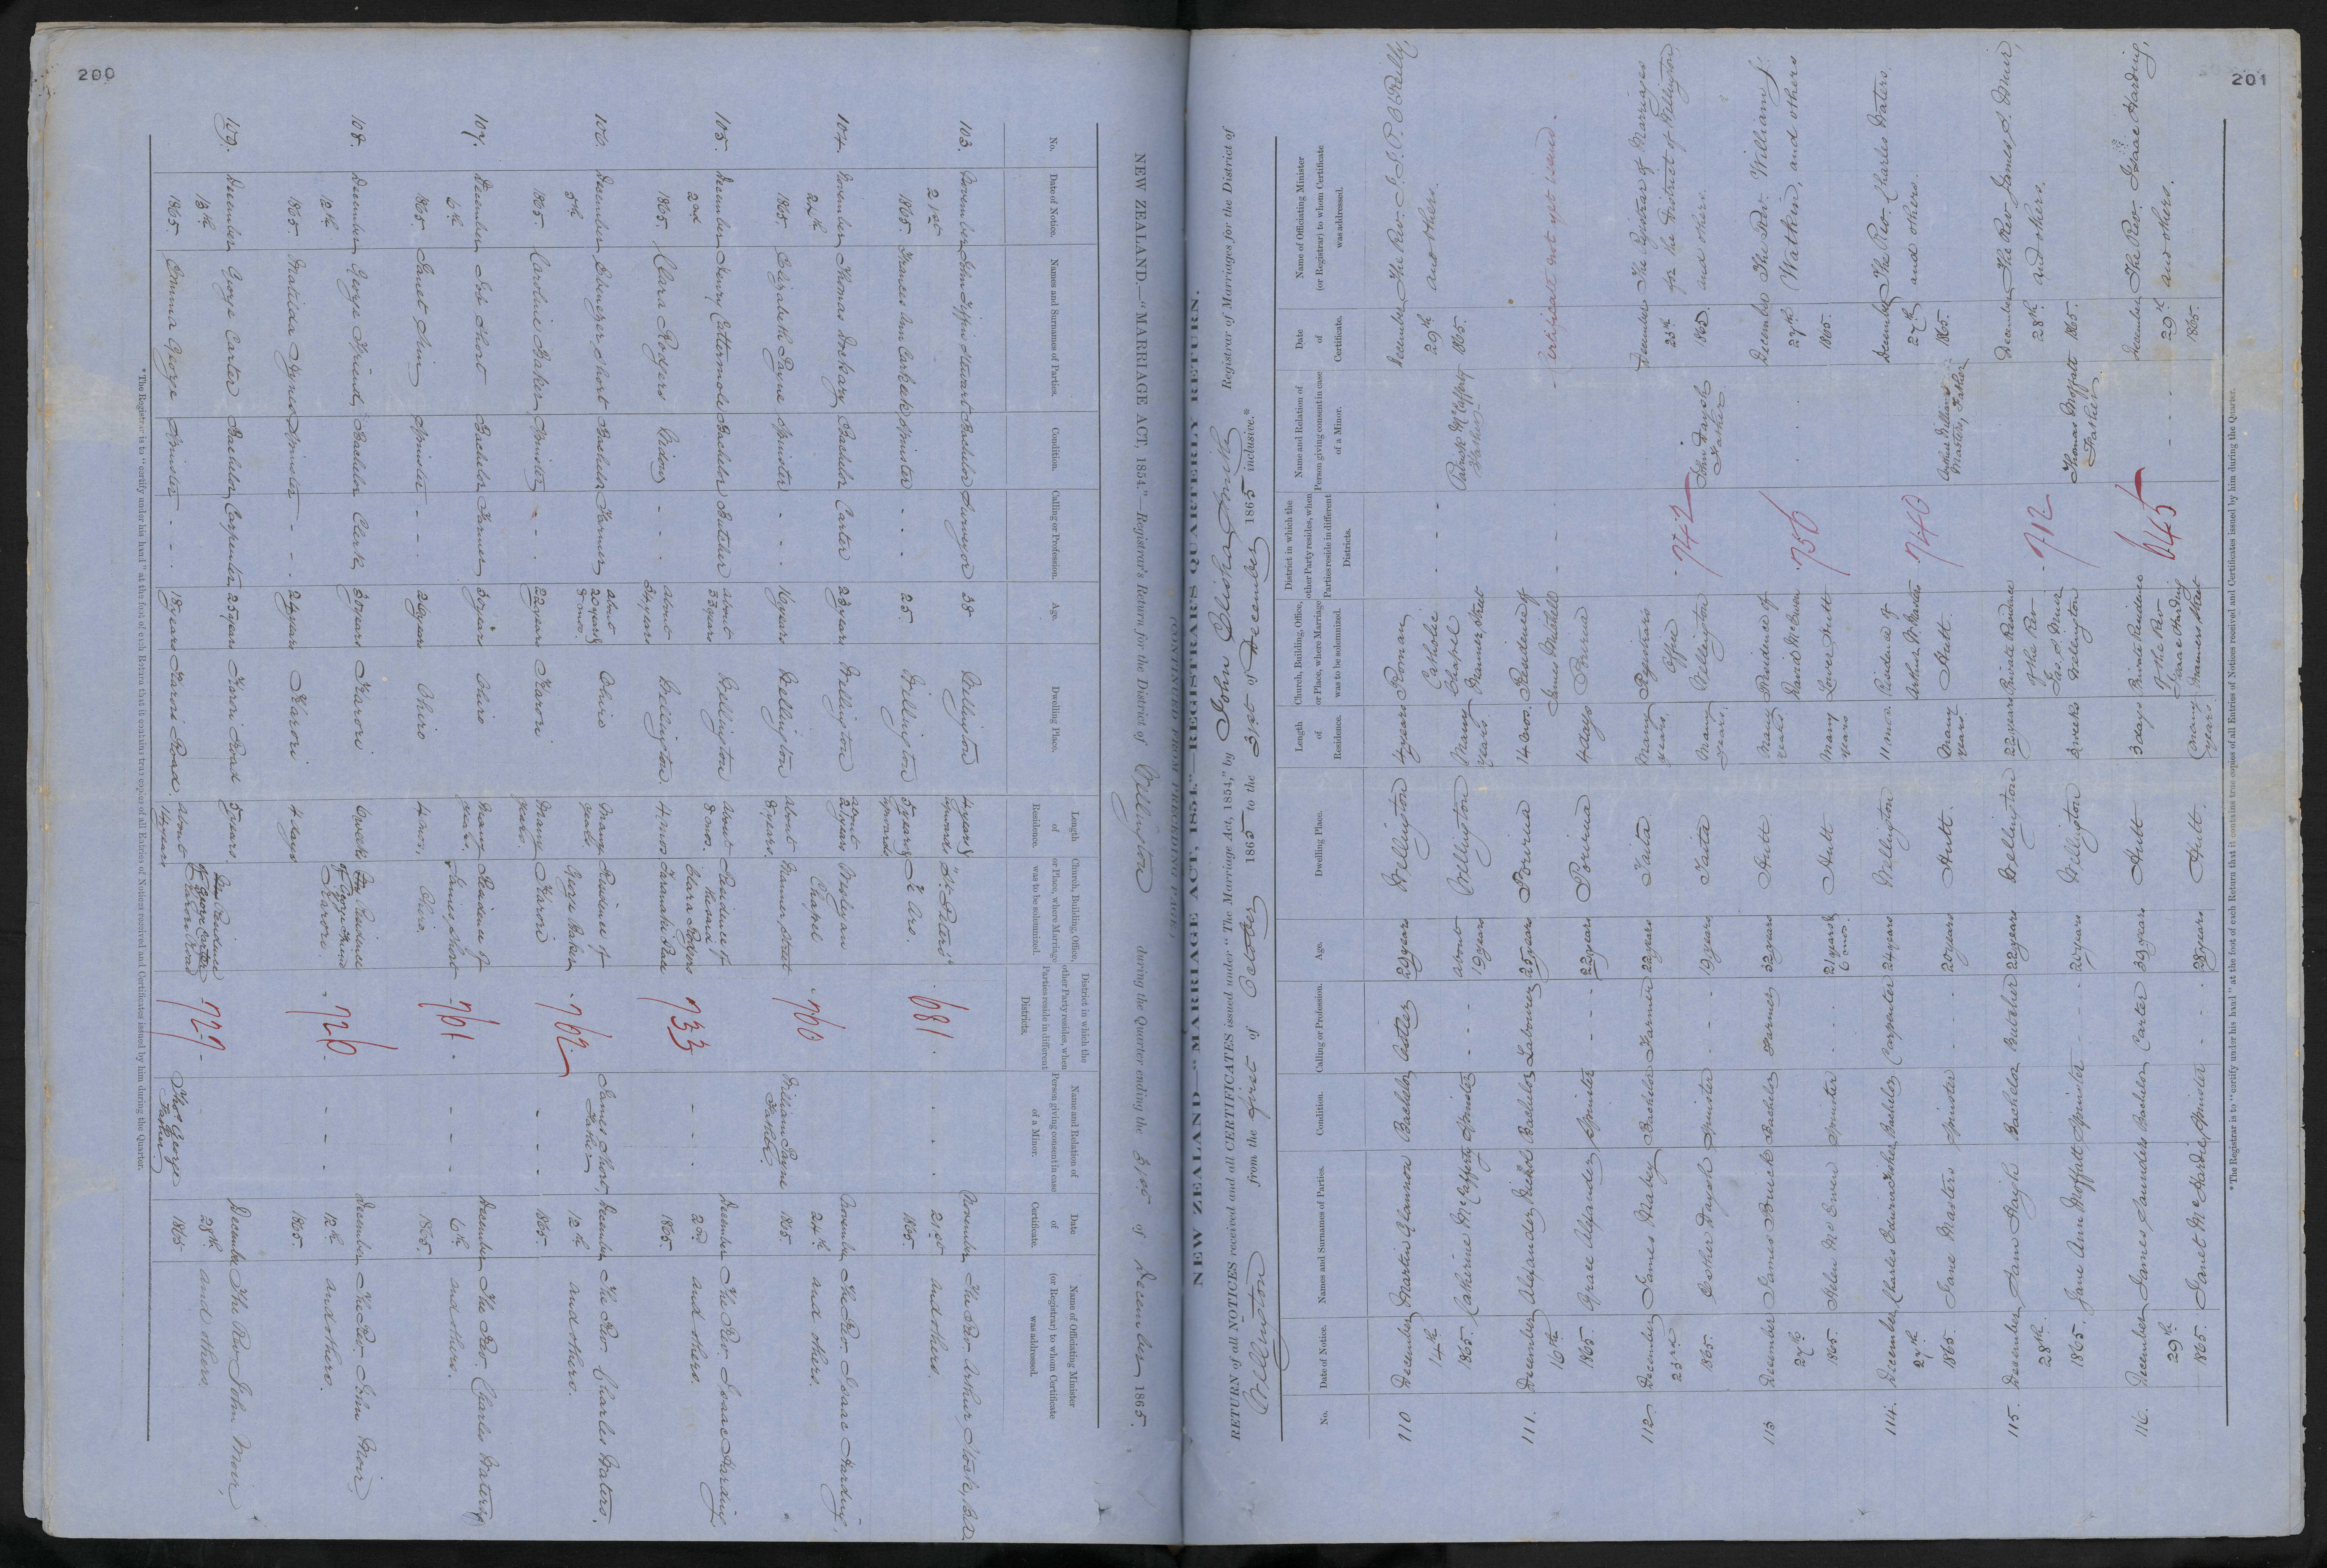 200
NEW ZEALAND.—"MARRIAGE ACT, 1854."—Registrar's Return for the District of Wellington during the Quarter ending the 31st of December 1865.
No.
Date of Notice.
Names and Surnames of Parties.
Condition.
Calling or Profession.
Age.
Dwelling Place.
Length of Residence.
Church, Building, Office, or Place, where Marriage was to be solemnized.
District in which the other Party resides, when Parties reside in different Districts.
Name and Relation of Person giving consent in case of a Minor.
Date of Certificate.
Name of Officiating Minister (or Registrar) to whom Certificate was addressed.
103. November 21st 1865
John Stewart Bachelor Surveyor 38 Wellington 4 years & upwards "St. Peters"
Frances Ann Spinster - - - 25 Wellington 5 years & upwards Te Aro.
681
November 21st 1865. The Rev. Arthur Stock, B.A. and others.
104. November 24th 1865
Thomas Bachelor Carter 23 years Wellington about 2 years Wesleyan Chapel
Elizabeth Payne Spinster - - - 16 years Wellington about 8 years. Manner Street
760
William Payne Father.
November 24th 1865. The Rev. Isaac Harding, and others.
105. December 2nd 1865.
Henry Cattermole Bachelor Butcher about 33 years Wellington about 8 mos. Residence of
Clara Rodgers Widow - - - about 34 years Wellington. 4 mos Clara Rodgers Taranaki Place
733
December 2nd 1865. The Rev Isaac Harding and others.
106. December 5th 1865.
Ebenezer Short Bachelor Farmer about 20 years & 8 mos. Ohiro Many years Residence of
Caroline Baker Spinster - - - 22 years Karori Many years. George Baker Karori
762
James Short, Father
December 12th 1865. The Rev. Charles Waters, and others.
107. December 6th 1865.
Job Short Bachelor Farmer 30 years Ohiro Many years. Residence of
Janet Sim Spinster - - - 20 years Ohiro 4 mos. James Short Ohiro.
761
December 6th 1865. The Rev. Charles Waters, and others.
108. December 12th 1865
George Friend, Bachelor Clerk 30 years Karori Residence of George Friend
Matilda Spinster - - - 24 years Karori 4 days Karori.
726
December 12th 1865. The Rev. John Moir, and others.
109. December 13th 1865.
George Carter Bachelor Carpenter 25 years Karori Road 5 years. Residence of George Carter
Emma George Spinster - - - 18 years Karori Road. about 14 years Karori Road
727
Thos George Father.
December 28th 1865 The Rev John Moir, and others.
* The Registrar is to "certify under his hand" at the foot of each Return that it contains true copies of all Entries of Notices received and Certificates issued by him during the Quarter.
201
NEW ZEALAND—"MARRIAGE ACT, 1854."—REGISTRAR'S QUARTERLY RETURN.
(CONTINUED FROM PRECEDING PAGE.)
RETURN of all NOTICES received and all CERTIFICATES issued under "The Marriage Act, 1854," by John Elisha Smith Registrar of Marriages for the District of
Wellington from the first of October 1865 to the 31st of December 1865 inclusive.*
No.
Date of Notice.
Names and Surnames of Parties.
Condition.
Calling or Profession.
Age.
Dwelling Place.
Length of Residence.
Church, Building, Office, or Place, where Marriage was to be solemnized.
District in which the other Party resides, when Parties reside in different Districts.
Name and Relation of Person giving consent in case of a Minor.
Date of Certificate.
Name of Officiating Minister (or Registrar) to whom Certificate was addressed.
110 December 14th 1865.
Martin Glannon Bachelor Ostler 29 years Wellington 4 years Roman Catholic
Catherine McCafferty Spinster - - - about 19 years Wellington Many years. Chapel Manner Street
Patrick McCafferty Father
December 29th 1865. The Rev. J. P. O'Reilly, and others.
111. December 16th 1865.
Alexander Nichol Bachelor Labourer 25 years Porirua 14 mos. Residence of
Grace Alexander Spinster - - - 22 years Porirua 4 days James Mitchell Porirua
Certificate not yet issued.
112 December 23rd 1865.
James Maley Bachelor Farmer 22 years Taita Many years. Registrar's Office
Esther Daysh Spinster - - - 19 years Taita Many years. Wellington
742
John Daysh Father
December 23rd 1865. The Registrar of Marriages for the District of Wellington and others.
113 December 27th 1865.
James Buick Bachelor Farmer 32 years Hutt Many years Residence of
Helen McEwen Spinster - - - 21 years & 6 mos. Hutt Many years David McEwen Lower Hutt
756
December 27th 1865. The Rev. William J. Watkin, and others
114. December 27th 1865
Charles Edwin Bachelor Carpenter 24 years Wellington 11 mos. Residence of
Jane Masters Spinster - - - 20 years Hutt. Many years. Arthur W. Masters Hutt.
740
Arthur William Masters, Father
December 27th 1865. The Rev. Charles Waters. and others.
115. December 28th 1865.
Sam Haigh Bachelor Butcher 22 years Wellington 22 years Private Residence of the Rev
Jane Ann Moffatt Spinster - - - 20 years Wellington 3 weeks Jas. S. Muir Wellington
712
Thomas Moffatt Father
December 28th 1865. The Rev James S. Muir, and others.
116. December 29th 1865.
James Saunders Bachelor Carter 39 years Hutt 3 days Private Residence of the Rev
Janet McHardie Spinster - - - 28 years Hutt. Many years. Isaac Harding Manners Street
645
December 29th 1865. The Rev. Isaac Harding, and others.
* The Registrar is to "certify under his hand" at the foot of each Return that it contains true copies of all Entries of Notices received and Certificates issued by him during the Quarter.